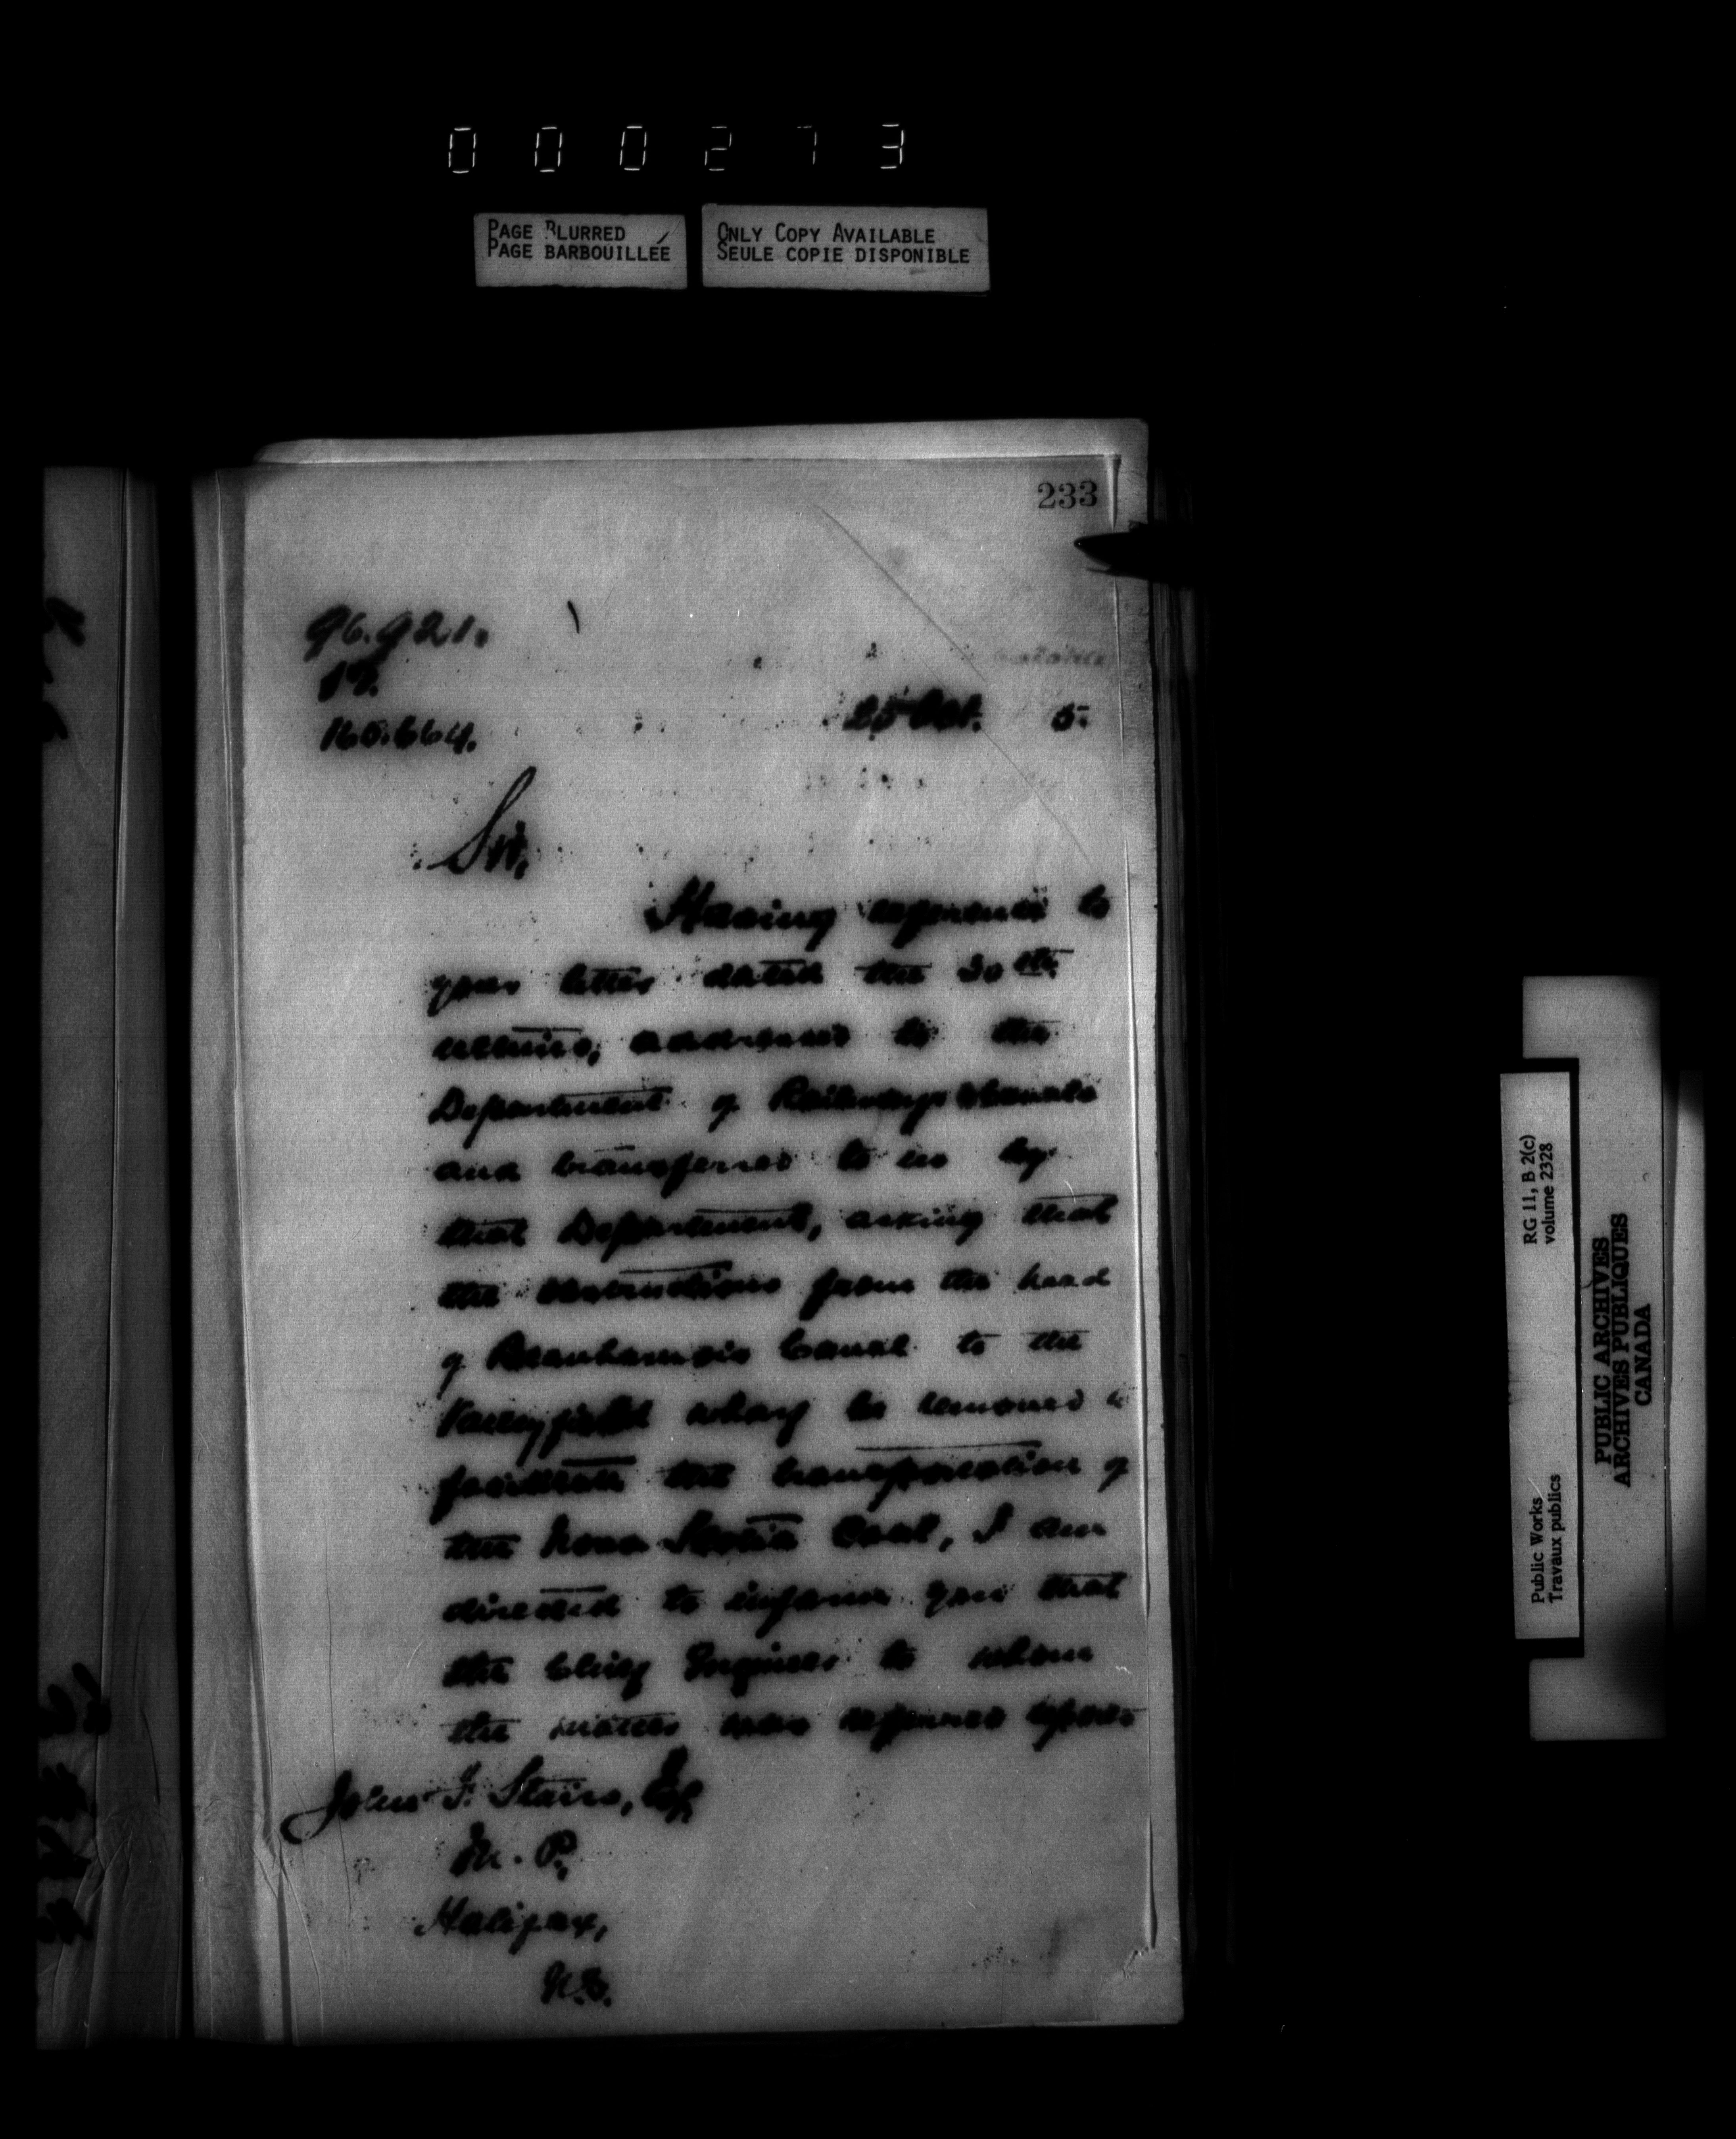 000273
PAGE BLURRED
PAGE BARBOUILLÉE
ONLY COPY AVAILABLE
SEULE COPIE DISPONIBLE
233
96.921.
165.664.
25 Oct. 5.
Sir,
Having reference to
your letter dated the 30th
ultimo, addressed to the
Department of Railways & Canals
and transferred to us by
that Department, asking that
the obstructions from the head
of Beauharnois Canal to the
Valleyfield wharf be removed to
facilitate the transportation of
the Nova Scotia Coal, I am
directed to inform you that
the Chief Engineer to whom
the matter was referred
John F. Stairs, Esq.
M. P.
Halifax,
N.S.
Public Works
Travaux publics
RG 11, B 2(c)
volume 2328
PUBLIC ARCHIVES
ARCHIVES PUBLIQUES
CANADA